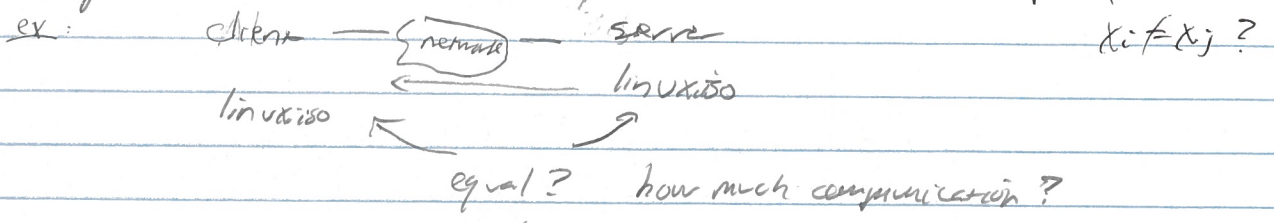 ex: client — network — server xi ≠ xj ?
linux.iso
linux.iso
equal? how much communication?